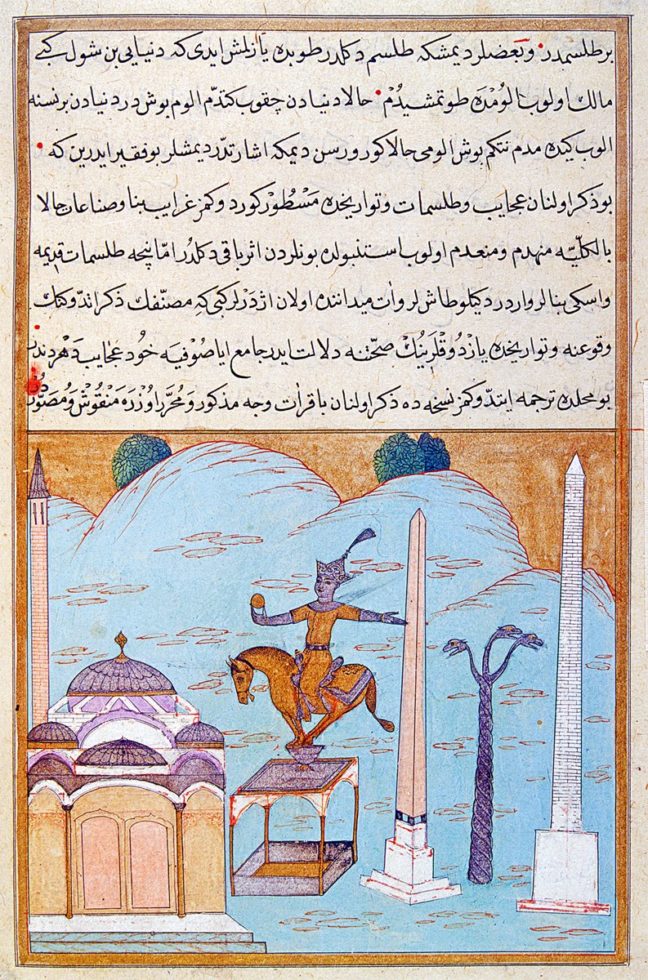 بر طلسمدر وبعضلر ديمشكه طلسم دكلدر طوبده يازلمش ايدى كه دنيايى بن شول كبى
مالك اولوب الومده طوتمشيدم حالا دنيادن چقوب كتدم الوم بوش در دنيادن برنسنه
الوب كيده مدم نتكم بوش الومى حالا كوررسن ديمكه اشارتدر ديمشلر بو فقير ايدرين كه
بو ذكر اولنان عجايب وطلسمات وتواريخده مسطور كوردوكمز غرايب بنا وصناعات حالا
بالكليه منهدم ومنعدم اولوب استنبولده بونلردن اثر باقى دكلدر اما نيجه طلسمات قديمه
واسكى بنالر واردر ديكلو طاشلر وات ميداننده اولان اژدرلر كبى كه مصنفك ذكر اتدوكنك
وقوعنه وتواريخده يازدوقلرينك صحتنه دلالت ايدر جامع اياصوفيه خود عجايب دهردندر
بو محلده ترجمه ايتدوكمز نسخه ده ذكر اولنان باقرات وجه مذكور ومحرر اوزره منقوش ومصوردر